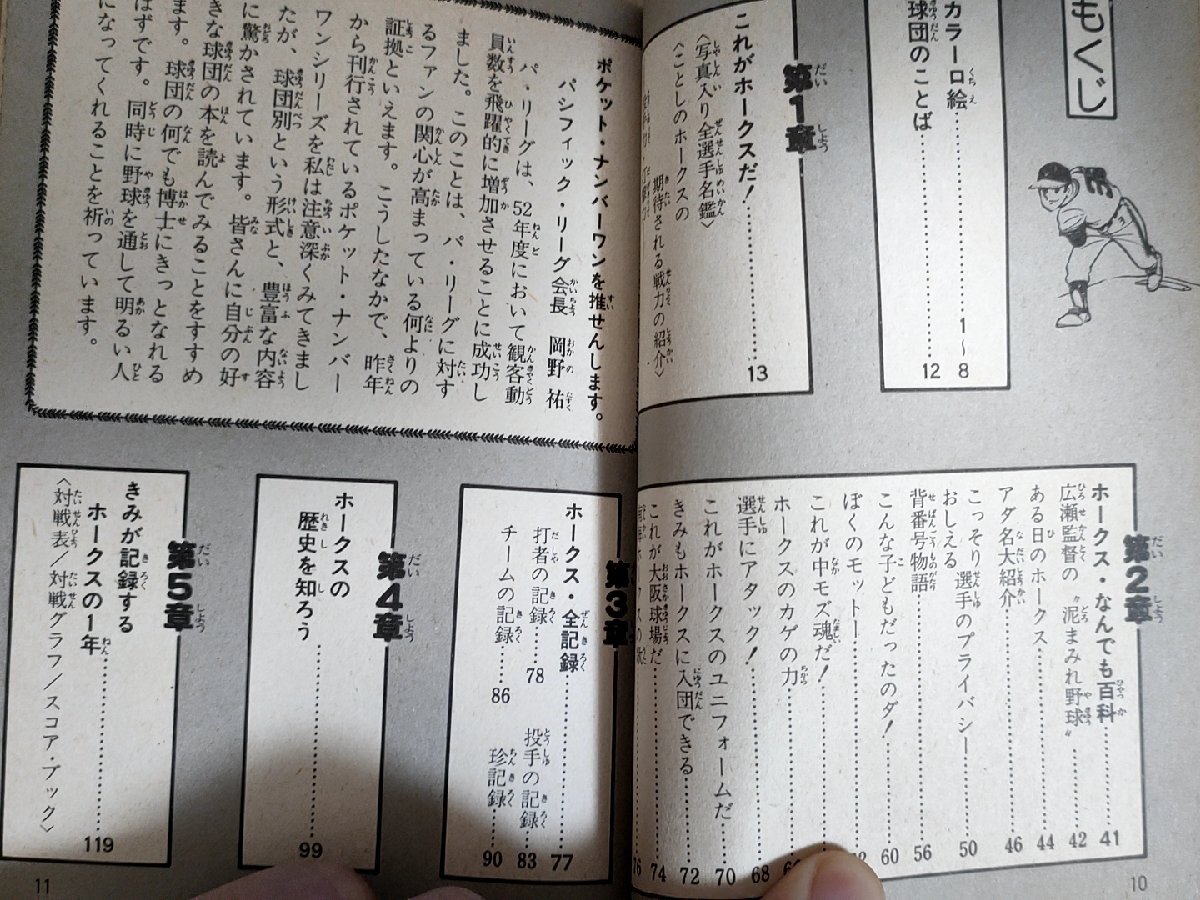 もくじ
カラー口絵……1～8
球団のことば……12
第1章
これがホークスだ！……13
〈写真入り全選手名鑑〉
〈ことしのホークスの
期待される戦力の紹介〉
第2章
ホークス・なんでも百科……41
広瀬監督の〝泥まみれ野球〟……42
ある日のホークス……44
アダ名大紹介……46
こっそり選手のプライバシー
おしえる……50
背番号物語……56
こんな子どもだったのダ！……60
ぼくのモットー……
これが中モズ魂だ！……
ホークスのカゲの力……
選手にアタック！……68
これがホークスのユニフォームだ……70
きみもホークスに入団できる……72
これが大阪球場だ……74
ホークスの歌……76
10
ポケット・ナンバーワンを推せんします。
パシフィック・リーグ会長 岡野 祐
パ・リーグは、52年度において観客動
員数を飛躍的に増加させることに成功し
ました。このことは、パ・リーグに対す
るファンの関心が高まっている何よりの
証拠といえます。こうしたなかで、昨年
から刊行されているポケット・ナンバー
ワンシリーズを私は注意深くみてきまし
たが、球団別という形式と、豊富な内容
に驚かされています。皆さんに自分の好
きな球団の本を読んでみることをすすめ
ます。球団の何でも博士にきっとなれる
はずです。同時に野球を通して明るい人
になってくれることを祈っています。
第3章
ホークス・全記録……77
打者の記録……78
投手の記録……83
チームの記録……86
珍記録……90
第4章
ホークスの
歴史を知ろう……99
第5章
きみが記録する
ホークスの1年……119
〈対戦表／対戦グラフ／スコア・ブック〉
11